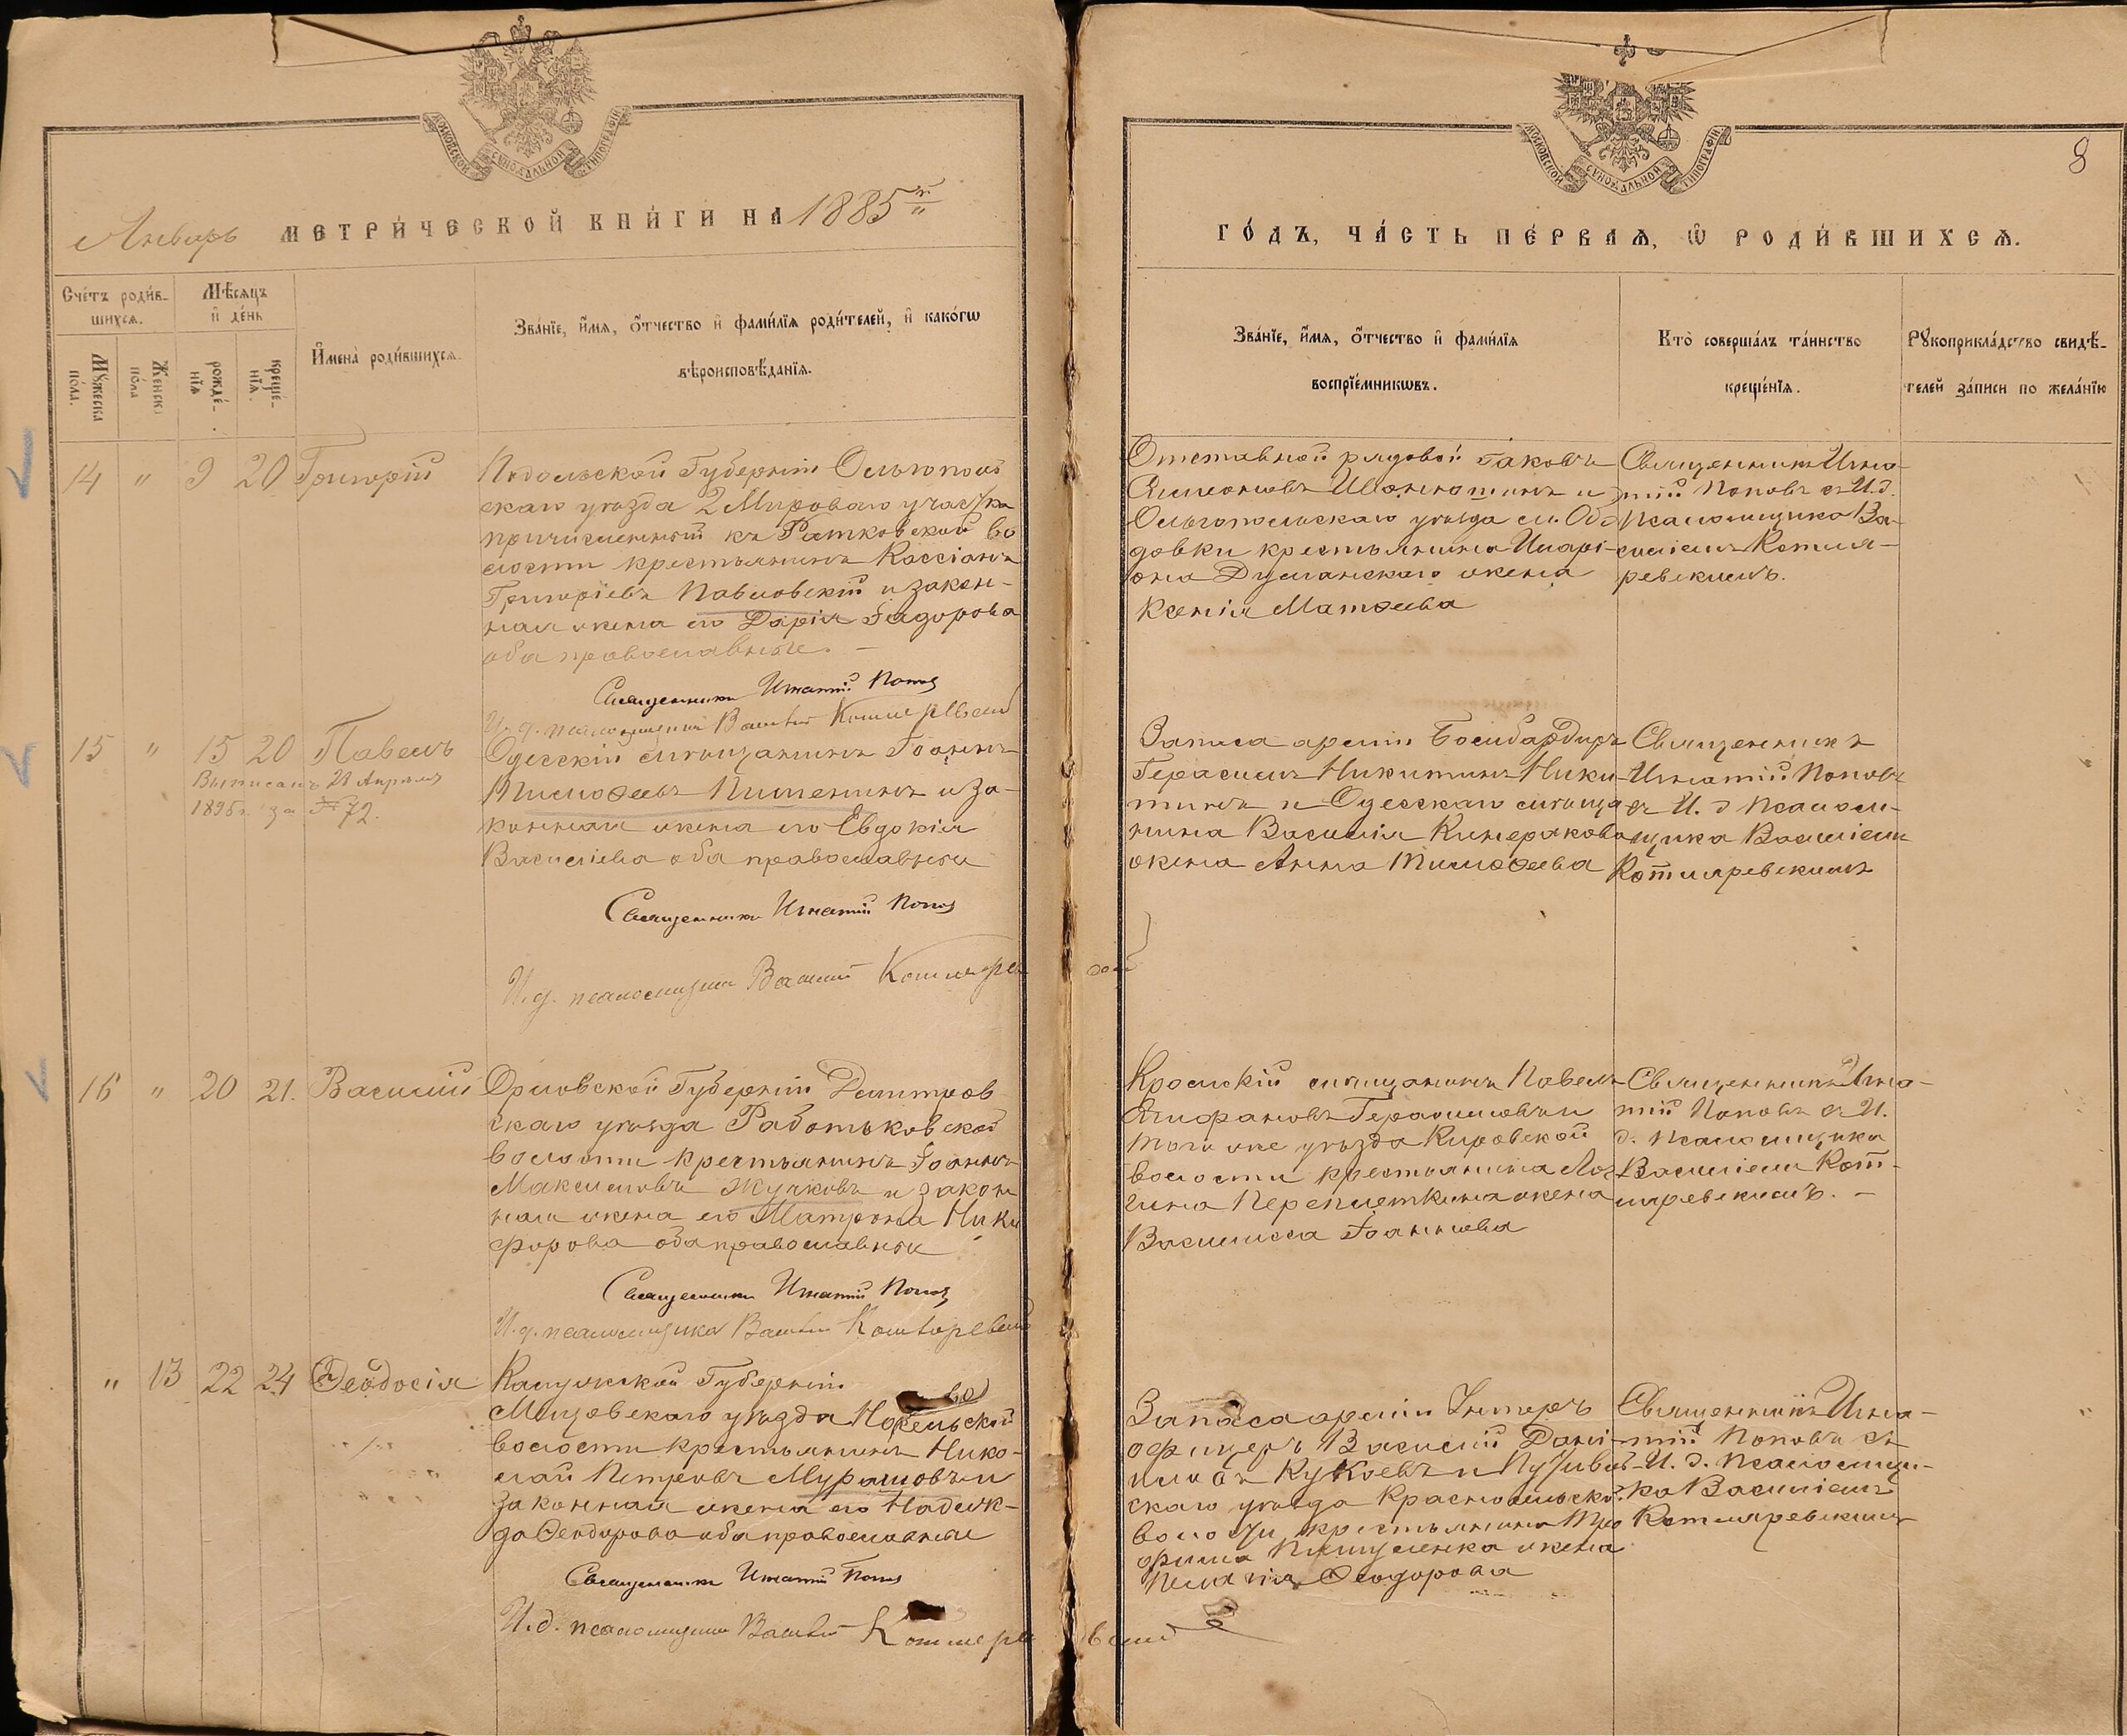 МОСКОВСКОЙ СѴНОДАЛЬНОЙ ТИПОГРАФІИ
Январь МЕТРИ́ЧЕСКОЙ КНИ́ГИ НА 1885й
Сче́тъ роди́в-
шихся.
Мѣ́сяцъ
и҆ де́нь
Мꙋ́жеска
по́ла.
Же́нска
по́ла
рожде́-
нїя
креще́-
нїя.
И҆мена̀ роди́вшихся.
Зва́нїе, и҆́мя, о҆́тчество и҆ фами́лїя роди́телей, и҆ како́гѡ
вѣроисповѣ́данїя.
14 " 9 20 Григорій
Подольской Губерніи Ольгополь
скаго уѣзда 2 Мироваго участка
причисленный къ Ратковской во
лости крестьянинъ Кассіанъ
Григоріевъ Павловскій и закон-
ная жена его Дарія Ѳеодорова
оба православные. –
Священникъ Игнатій Попов
И. д. псаломщика Василій Котляревскій
15 " 15 20 Павелъ
Выписанъ 23 Апрѣля
1895 г. за № 72.
Одесскій мѣщанинъ Іоаннъ
Тимоѳеевъ Пименинъ и за-
конная жена его Евдокія
Василіева оба православны
Священникъ Игнатій Попов
И. д. псаломщика Василій Котляревскій
16 " 20 21. Василій
Орловской Губерніи Дмитров
скаго уѣзда Работьковской
волости крестьянинъ Іоаннъ
Максимовъ Жучковъ и закон
ная жена его Матрона Ники
форова оба православны
Священникъ Игнатій Попов
И. д. псаломщика Василій Котляревскій
" 13 22 24 Ѳеодосія
Калужской Губерніи
Мещовскаго уѣзда
волости крестьянинъ Нико-
лай Петровъ Мурашовъ и
законная жена его Надеж-
да Ѳеодорова оба православны
Священникъ Игнатій Попов
И. д. псаломщика Василій Котляревскій
МОСКОВСКОЙ СѴНОДАЛЬНОЙ ТИПОГРАФІИ
8
ГО́ДЪ, ЧА́СТЬ ПЕ́РВАЯ, Ѡ҆ РОДИ́ВШИХСЯ.
Зва́нїе, и҆́мя, о҆́тчество и҆ фами́лїя
воспрїе́мникѡвъ.
Кто̀ соверша́лъ та́инство
креще́нїя.
Рꙋкоприкла́дство свидѣ́-
телей за́писи по жела́нїю
Отставной рядовой Іаковъ
Симеоновъ и
Ольгопольскаго уѣзда с. Обо
довки крестьянина Иларі-
она Думанскаго жена
Ксенія Матѳеева
Священникъ Игна-
тій Поповъ съ И. д.
Псаломщика Ва-
силіемъ Котля-
ревскимъ.
Запаса арміи Бомбардиръ
Герасимъ Никитинъ Ники-
тинъ и Одесскаго мѣща
нина Василія Кинерякова
жена Анна Тимоѳеева
Священникъ
Игнатій Поповъ
съ И. д Псалом-
щика Василіемъ
Котляревскимъ
Кромскій мѣщанинъ Павелъ
Епифановъ Герасимовъ и
того же уѣзда Кировской
волости крестьянина Лон
гина Переплеткина жена
Василисса Іоаннова
Священникъ Игна-
тій Поповъ съ И.
д. Псаломщика
Василіемъ Кот-
ляревскимъ. –
Запаса арміи Унтеръ
офицеръ Василій Дані-
иловъ Кукоевъ и Путивль-
скаго уѣзда
волости крестьянина Тро
фима жена
Пелагія Ѳеодорова
Священникъ Игна-
тій Поповъ съ
И. д. Псаломщи-
ка Василіемъ
Котляревскимъ